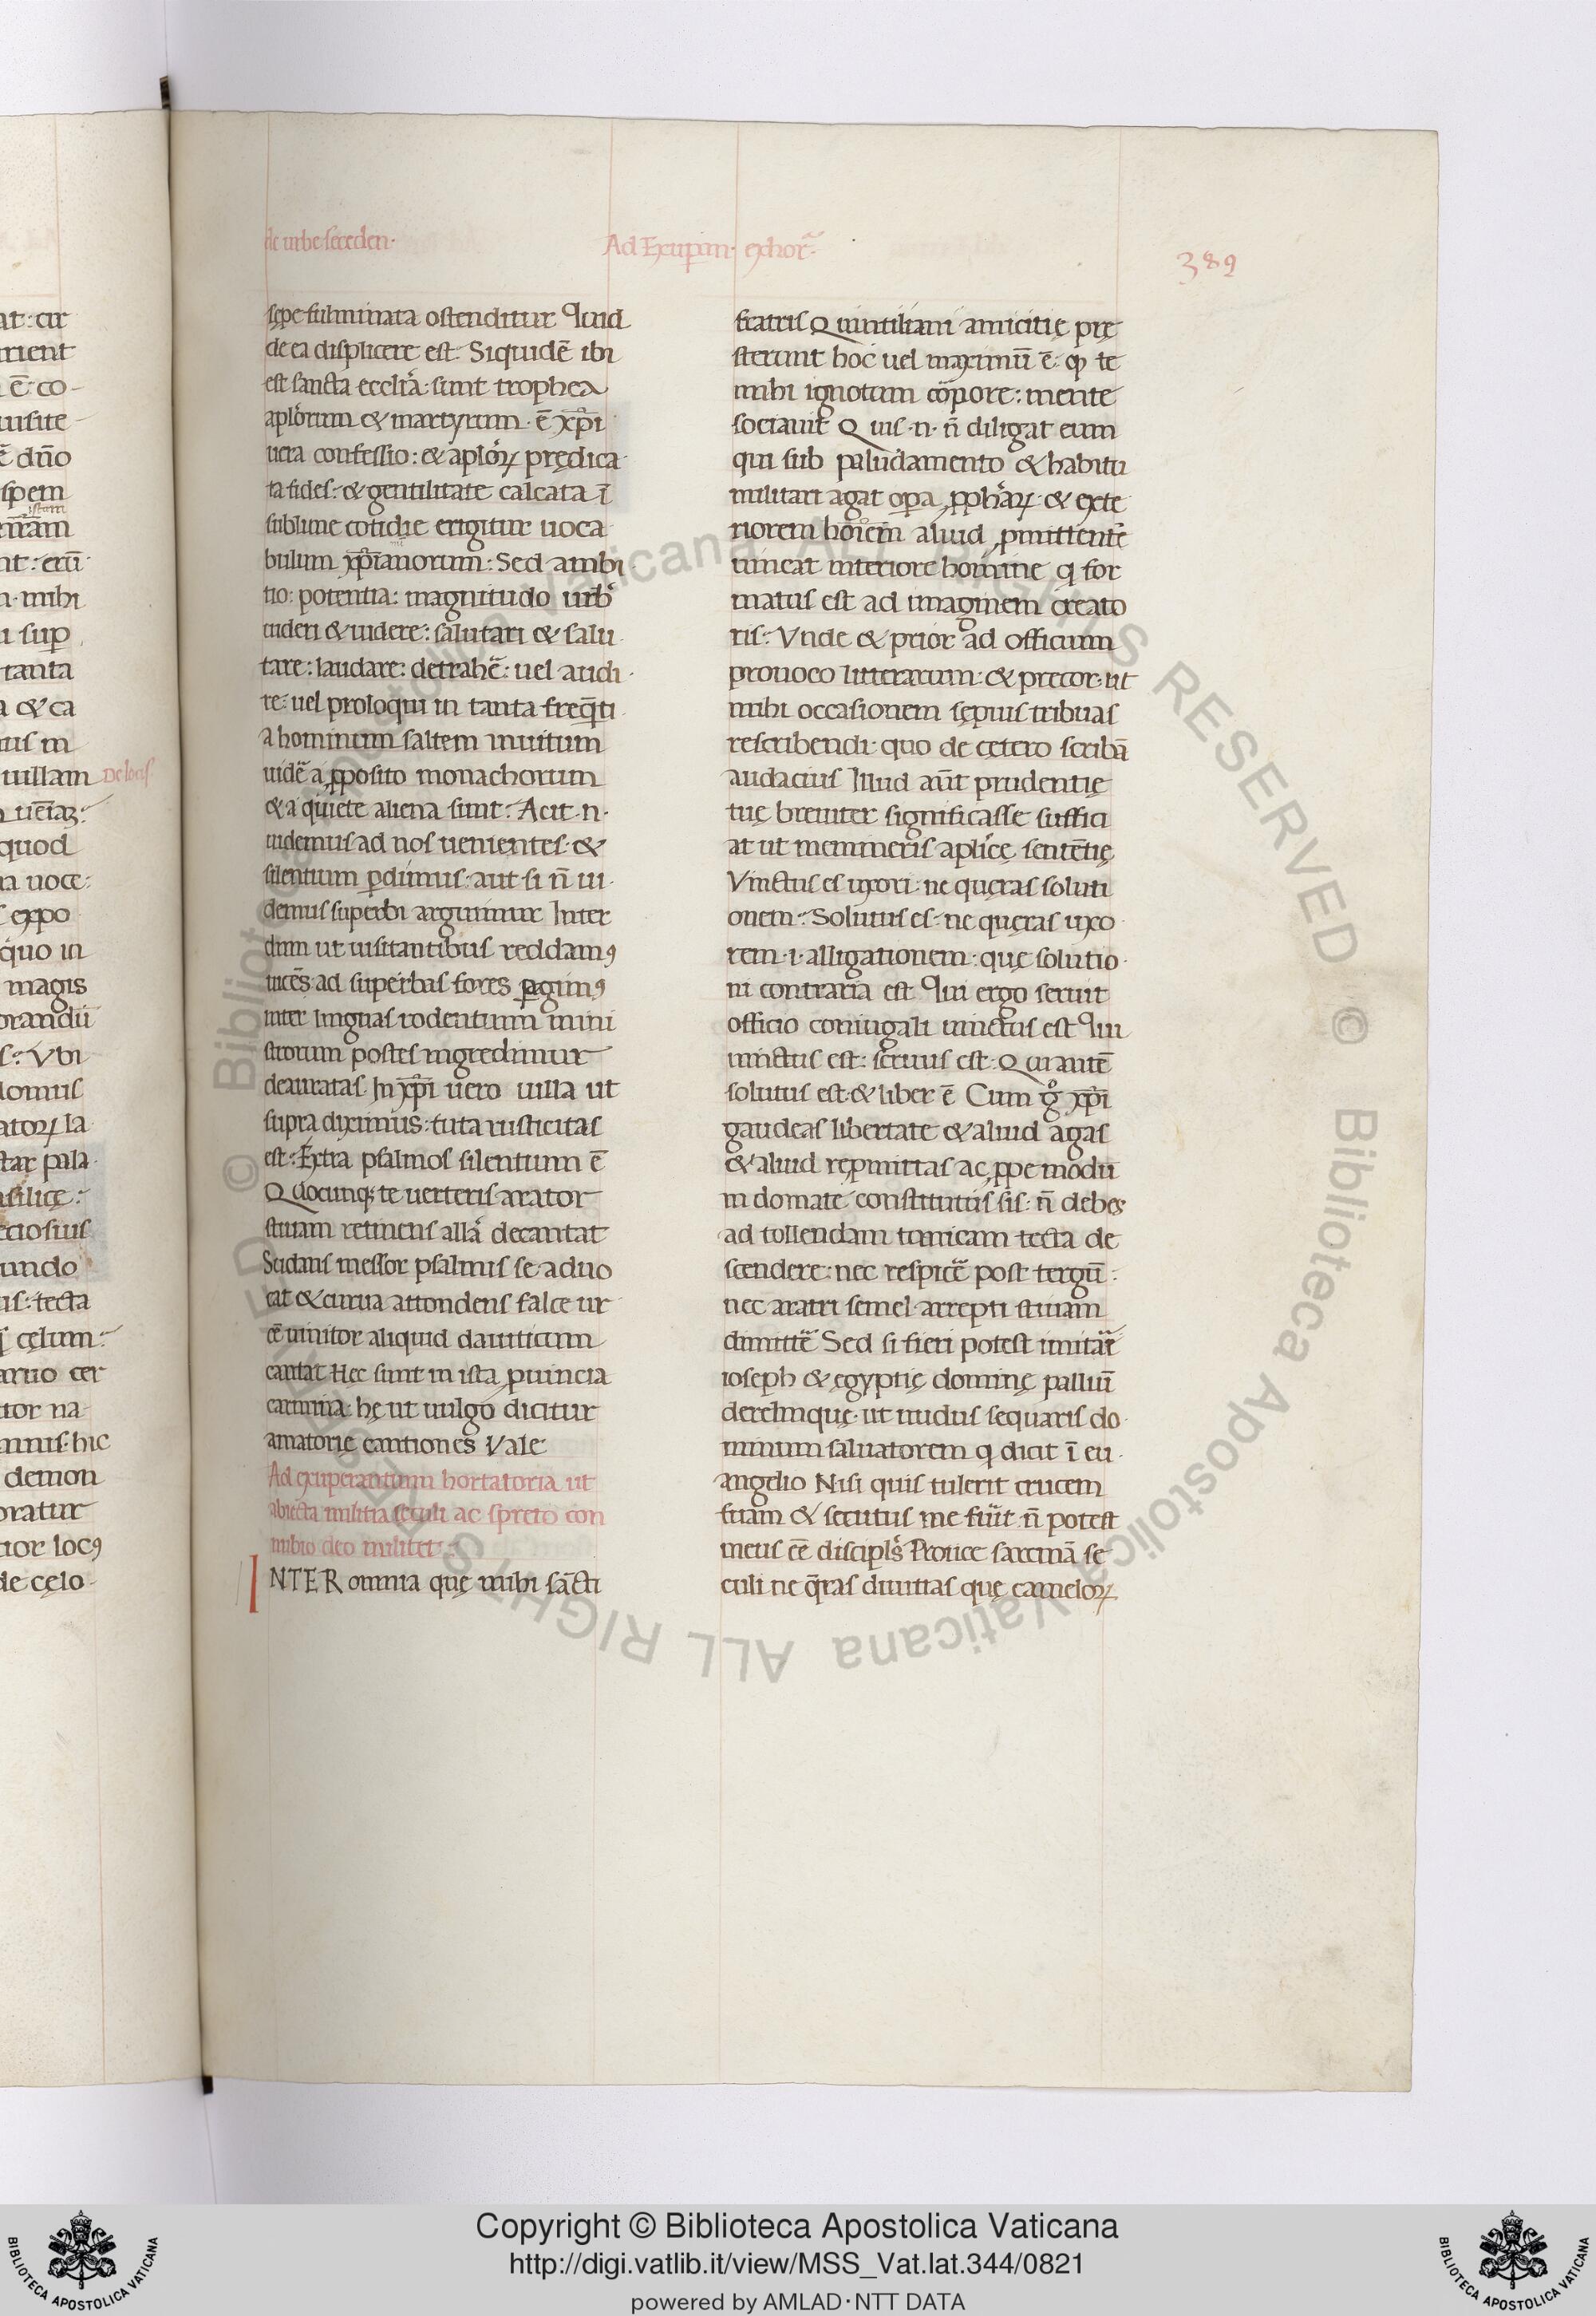 de urbe seceden·
Ad Exupan· exhor̄·
389
sępe fulminata ostenditur Quid
de ea displicere est: Siquidē ibi
est sancta ecclīa: sunt trophea
aplōrum & martyrum· ē xp̄i
uera confessio: & aplōꝝ prędica
ta fides: & gentilitate calcata ī
sublime cotidie erigitur uoca
bulum xp̄ianorum: Sed ambi
tio: potentia: magnitudo urb̄
uideri & uidere: salutari & salu
tare: laudare: detrahē: uel audi
re: uel proloqui in tanta freq̄ti
a hominum saltem inuitum
uidē a ꝓposito monachorum
& a quiete aliena sunt: Aut·n·
uidemus ad nos uenientes· &
silentium ꝑdimus: aut si n̄ ui
demus superbi arguimur Inter
dum ut uisitantibus reddamꝰ
uicēs ad superbas fores ꝑgimꝰ
inter linguas rodentium mini
strorum postes ingredimur
deauratas In xp̄i uero uilla ut
supra diximus: tuta rusticitas
est: Extra psalmos silentium ē
Quocunqꝫ te uerteris arator
stiuam retinens allā decantat
Sudans messor psalmis se aduo
cat & curua attondens falce ui
tē uinitor aliquid dauiticum
cantat Hęc sunt in ista ꝓuincia
carmina: hę ut uulgo dicitur
amatorię cantiones Vale
Ad exuperantium hortatoria ut
abiecta militia seculi ac spreto con
nubio deo militet:
INTER omnia quę mihi sācti
fratris Quintiliani amicitię prę
sterunt hoc uel maximū ē· ꝙ te
mihi ignotum cōrpore: mente
sociauit Quis·n· n̄ diligat eum
qui sub paludamento & habitu
militari agat opa ꝓphaꝝ· & exte
riorem hōiem aliud ꝓmittentē
uincat interiore homine q for
matus est ad imaginem creato
ris: Vnde & prior ad officium
prouoco litterarum: & precor· ut
mihi occasionem sępius tribuas
rescribendi· quo de cętero scribā
audacius Illud aūt prudentię
tuę breuiter significasse suffici
at ut memineris aplicę sentētię
Vinctus es uxori· ne quęras soluti
onem: Solutus es: ne quęras uxo
rem·i·alligationem: quę solutio
ni contraria est Qui ergo seruit
officio coniugali uinctus est Qui
uinctus est: seruus est· Qui autē
solutus est· & liber ē Cum gͦ xp̄i
gaudeas libertate & aliud agas
& aliud repmittas ac ꝓpe modū
in domate constitutus sis· n̄ debes
ad tollendam tunicam tecta de
scendere: nec respicē post tergū:
nec aratri semel arrepti stiuam
dimittē Sed si fieri potest imitār̄
ioseph & ęgyptię dominę palliū
derelinque· ut nudus sequaris do
minum saluatorem q dicit ī eu
angelio Nisi quis tulerit crucem
suam & secutus me fuīt n̄ potest
meus eē discipls̄ Proiice sarcinā se
culi ne q̄ras diuitias quę cameloꝝ
De locis
Copyright © Biblioteca Apostolica Vaticana
http://digi.vatlib.it/view/MSS_Vat.lat.344/0821
powered by AMLAD·NTT DATA